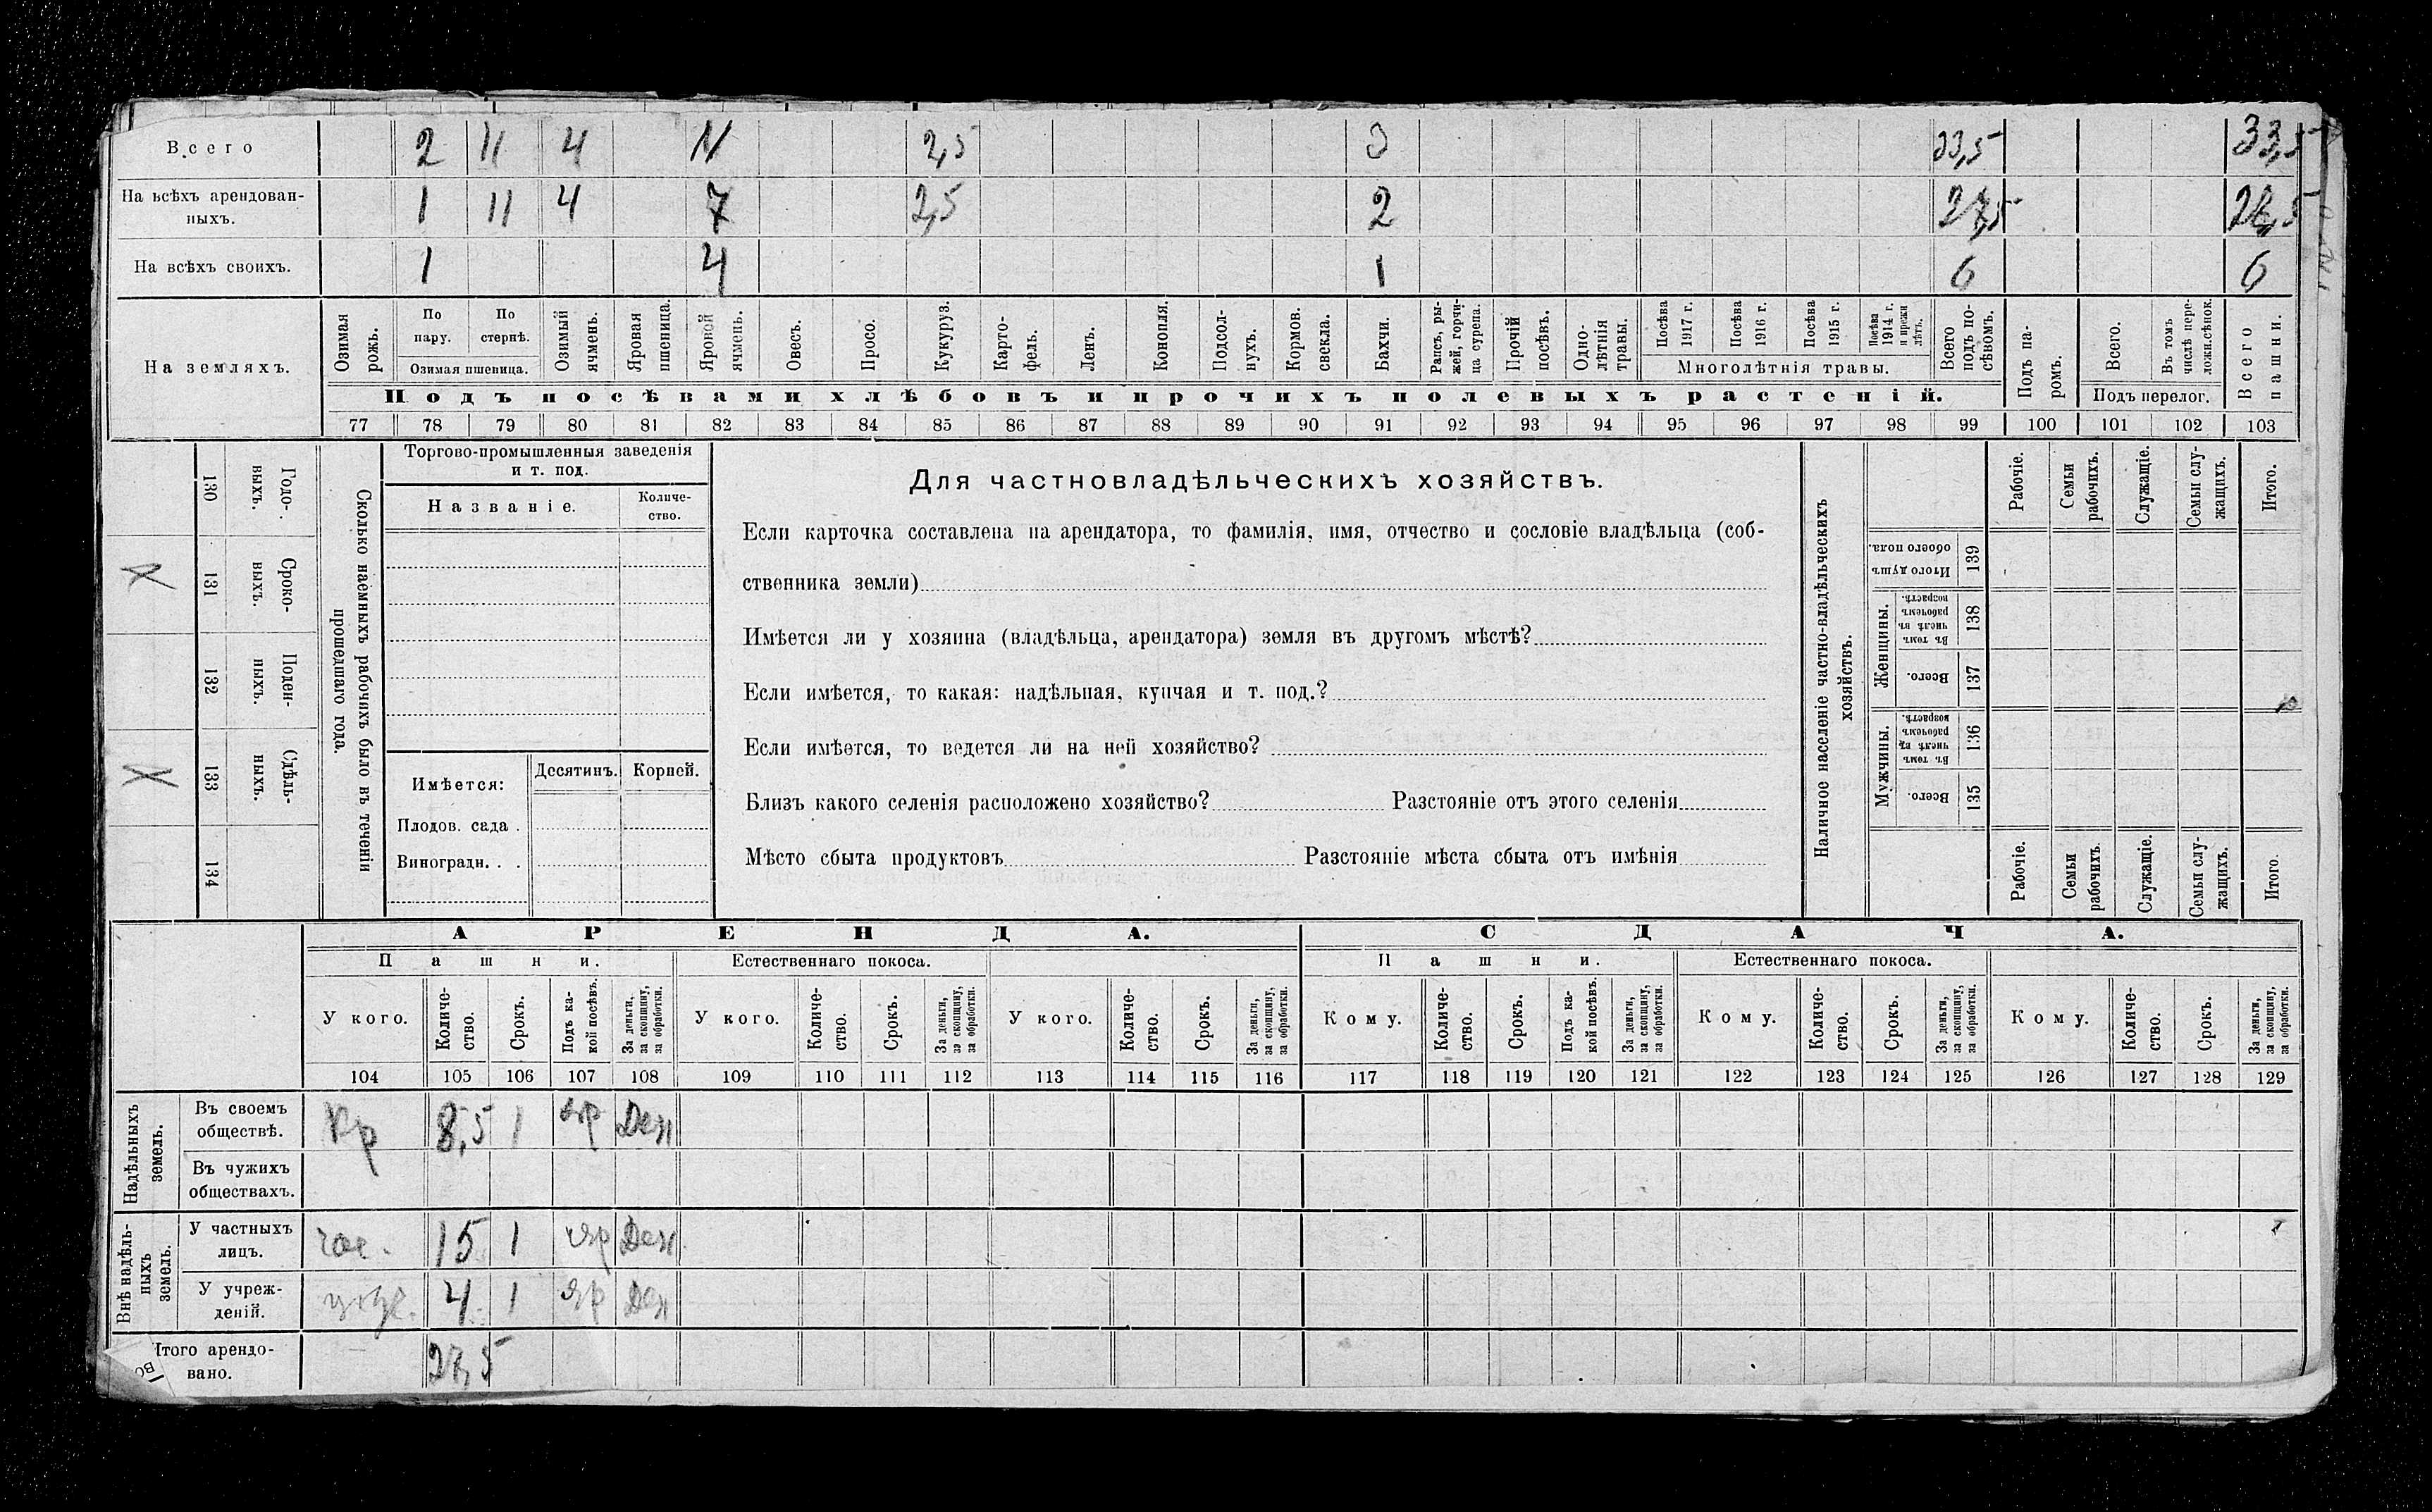 Всего 2 11 4 11 2,5 3 33,5 33,5
На всѣхъ арендован-
ныхъ. 1 11 4 7 2,5 2 27,5
На всѣхъ своихъ. 1 4 1 6 6
На земляхъ.
Озимая рожь.
По пару.
По стернѣ.
Озимая пшеница.
Озимый ячмень.
Яровая пшеница.
Яровой ячмень.
Овесъ.
Просо.
Кукуруз.
Карто-
фель.
Ленъ.
Конопля.
Подсол-
нухъ.
Кормов.
свекла.
Бахчи.
Рапсъ, ры-
жей, горчи-
ца сурепа.
Прочій
посѣвъ.
Одно-
лѣтнія
травы.
Посѣва
1917 г.
Посѣва
1916 г.
Посѣва
1915 г.
Посѣва
1914 г.
и прежн
лѣтъ.
Многолѣтнія травы.
Всего
подъ по-
сѣвомъ.
Подъ па-
ромъ.
Всего.
Въ томъ
числѣ пере-
ложн.сѣнок.
Подъ перелог.
Всего
пашни.
Подъ посѣвами хлѣбовъ и прочихъ полевыхъ растеній.
77 78 79 80 81 82 83 84 85 86 87 88 89 90 91 92 93 94 95 96 97 98 99 100 101 102 103
Годо-
выхъ.
130
Сроко-
выхъ.
131
Х
Поден-
ныхъ.
132
Сдѣль-
ныхъ.
133
Х
134
Сколько наемныхъ рабочихъ было въ теченіи
прошедшаго года.
Торгово-промышленныя заведенія
и т. под.
Названіе.
Количе-
ство.
Имѣется:
Десятинъ. Корней.
Плодов. сада .
Виноградн. . .
Для частновладѣльческихъ хозяйствъ.
Если карточка составлена на арендатора, то фамилія, имя, отчество и сословіе владѣльца (соб-
ственника земли)
Имѣется ли у хозяина (владѣльца, арендатора) земля въ другомъ мѣстѣ?
Если имѣется, то какая: надѣльная, купчая и т. под.?
Если имѣется, то ведется ли на ней хозяйство?
Близъ какого селенія расположено хозяйство? Разстояніе отъ этого селенія
Мѣсто сбыта продуктовъ Разстояніе мѣста сбыта отъ имѣнія
Наличное населеніе частно-владѣльческихъ
хозяйствъ.
Рабочіе.
Семьи
рабочихъ.
Служащіе.
Семьи слу-
жащихъ.
Итого.
Итого душъ
обоего пола.
139
Женщины.
Въ томъ
числѣ въ
рабочемъ
возрастѣ.
138
Всего.
137
Мужчины.
Въ томъ
числѣ въ
рабочемъ
возрастѣ.
136
Всего.
135
Рабочіе.
Семьи
рабочихъ.
Служащіе.
Семьи слу-
жащихъ.
Итого.
АРЕНДА. СДАЧА.
Пашни. Естественнаго покоса. Пашни. Естественнаго покоса.
У кого.
Количе-
ство.
Срокъ.
Подъ ка-
кой посѣвъ.
За деньги,
за скопщину,
за обработки.
У кого.
Количе-
ство.
Срокъ.
За деньги,
за скопщину,
за обработки.
У кого.
Количе-
ство.
Срокъ.
За деньги,
за скопщину,
за обработки.
Кому.
Количе-
ство.
Срокъ.
Подъ ка-
кой посѣвъ.
За деньги,
за скопщину,
за обработки.
Кому.
Количе-
ство.
Срокъ.
За деньги,
за скопщину,
за обработки.
Кому.
Количе-
ство.
Срокъ.
За деньги,
за скопщину,
за обработки.
104 105 106 107 108 109 110 111 112 113 114 115 116 117 118 119 120 121 122 123 124 125 126 127 128 129
Надѣльныхъ
земель.
Въ своемъ
обществѣ. Кр 8,5 1 яр Ден
Въ чужихъ
обществахъ.
Внѣ надѣль-
ныхъ
земель.
У частныхъ
лицъ. час. 15 1 яр Ден
У учреж-
деній. 4 1 яр Ден
Итого арендо-
вано. 27,5